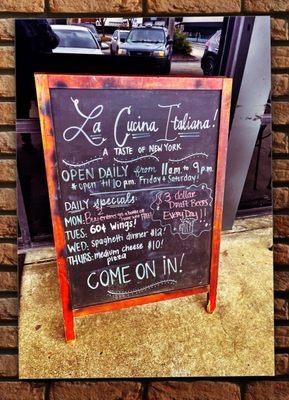 La Cucina Italiana!
A TASTE OF NEW YORK
OPEN DAILY from 11am to 9pm
& open til 10pm Friday & Saturday
DAILY specials
3 dollar
Draft Beers
Every Day!!
MON: Buy one get one free
TUES: 60¢ WINGS!
WED: spaghetti dinner $12
THURS: medium cheese pizza $10!
COME ON IN!